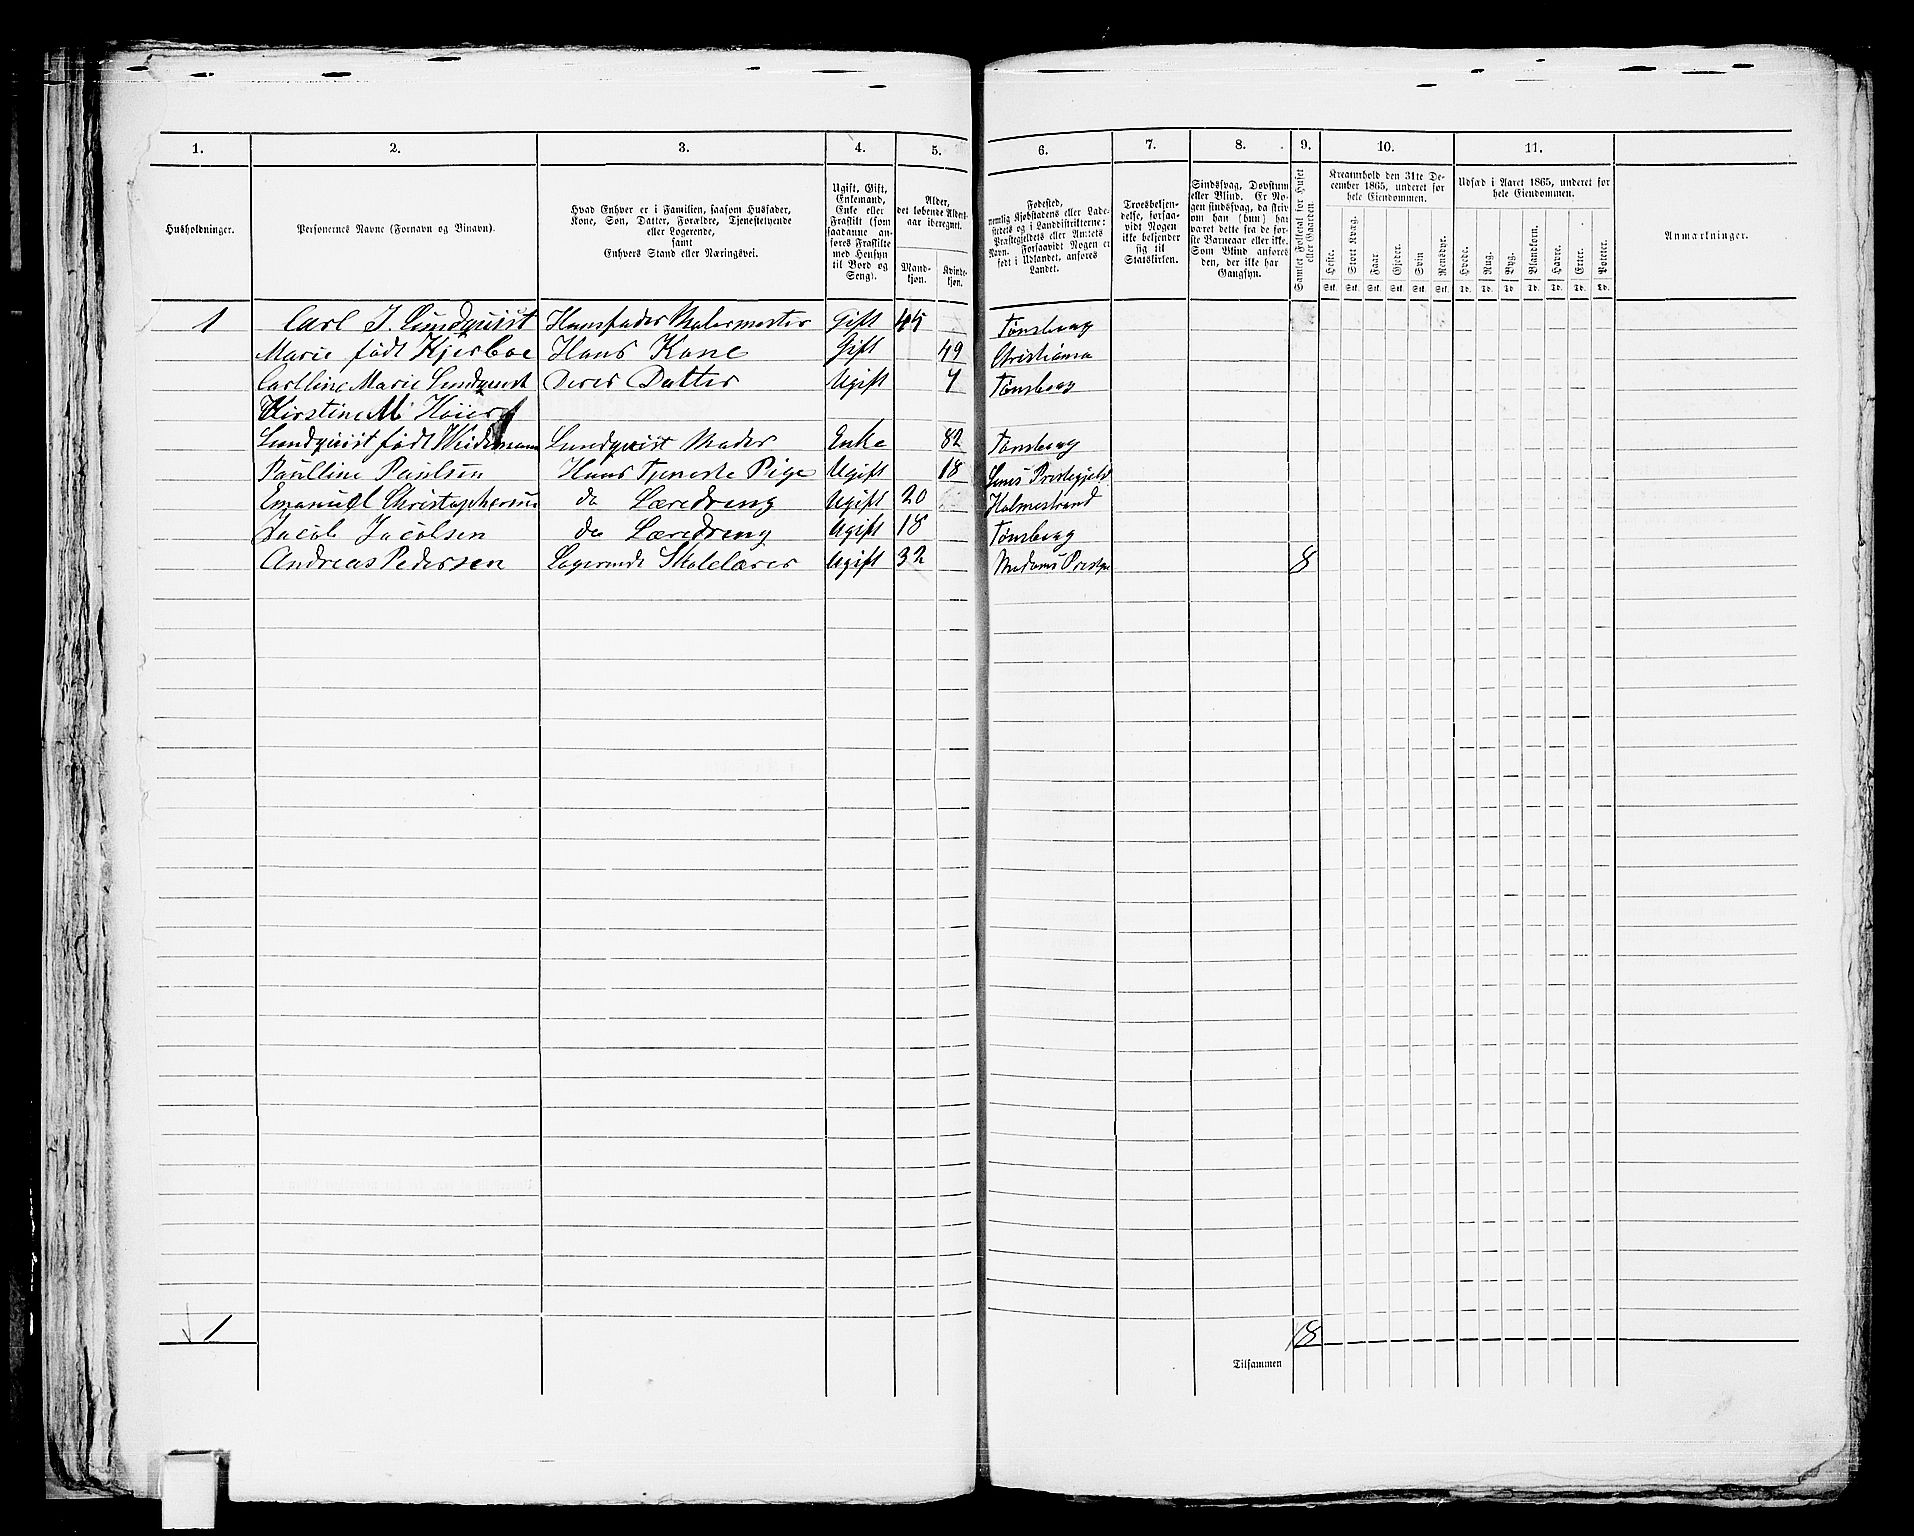 1. 2. 3. 4. 5. 6. 7. 8. 9. 10. 11.
Husholdninger.
Personernes Navne (Fornavn og Binavn).
Hvad Enhver er i Familien, saasom Husfader,
Kone, Søn, Datter, Forældre, Tjenestetyende
eller Logerende,
samt
Enhvers Stand eller Næringsvei.
Ugift, Gift,
Enkemand,
Enke eller
Fraskilt (som
saadanne an-
føres Fraskilte
med Hensyn
til Bord og
Seng).
Alder,
det løbende Alders-
aar iberegnet.
Mand-
kjøn.
Kvinde-
kjøn.
Fødested,
nemlig Kjøbstadens eller Lade-
stedets og i Landdistrikterne:
Præstegjeldets eller Amtets
Navn. Forsaavidt Nogen er
født i Udlandet, anføres
Landet.
Troesbekjen-
delse, forsaa-
vidt Nogen
ikke bekjender
sig til
Statskirken.
Sindssvag, Døvstum
eller Blind. Er No-
gen sindssvag, da skriv
om han (hun) har
været dette fra de før-
ste Barneaar eller ikke.
Som Blind anføres
den, der ikke har
Gangsyn.
Samlet Folketal for Huset
eller Gaarden.
Kreaturhold den 31te De-
cember 1865, underet for
hele Eiendommen.
Heste. Stort Kvæg. Faar. Gjeder. Svin Rensdyr.
Stk. Stk. Stk. Stk. Stk. Stk.
Udsæd i Aaret 1865, underet for
hele Eiendommen.
Hvede. Rug. Byg. Blandkorn. Havre. Erter. Poteter.
Td. Td. Td. Td. Td. Td. Td.
Anmærkninger.
1 Carl J. Lundquist Huusfader Malermester Gift 45 Tønsberg
Marie født Kjerboe Hans Kone Gift 49 Christiania
Carlline Marie Lundquist Deres Datter Ugift 7 Tønsberg
Kirstine M. Høier
Lundquist født Widemann Lundquist Moder Enke 82 Tønsberg
Paulline Paulsen Hans Tjeneste Pige Ugift 18 Prestegjeld
Emanuel do Læredreng Ugift 20 Holmestrand
Jacob Jacobsen do Læredreng Ugift 18 Tønsberg
Andreas Pedersen Logerende Skolelærer Ugift 32 8
1 8
Tilsammen